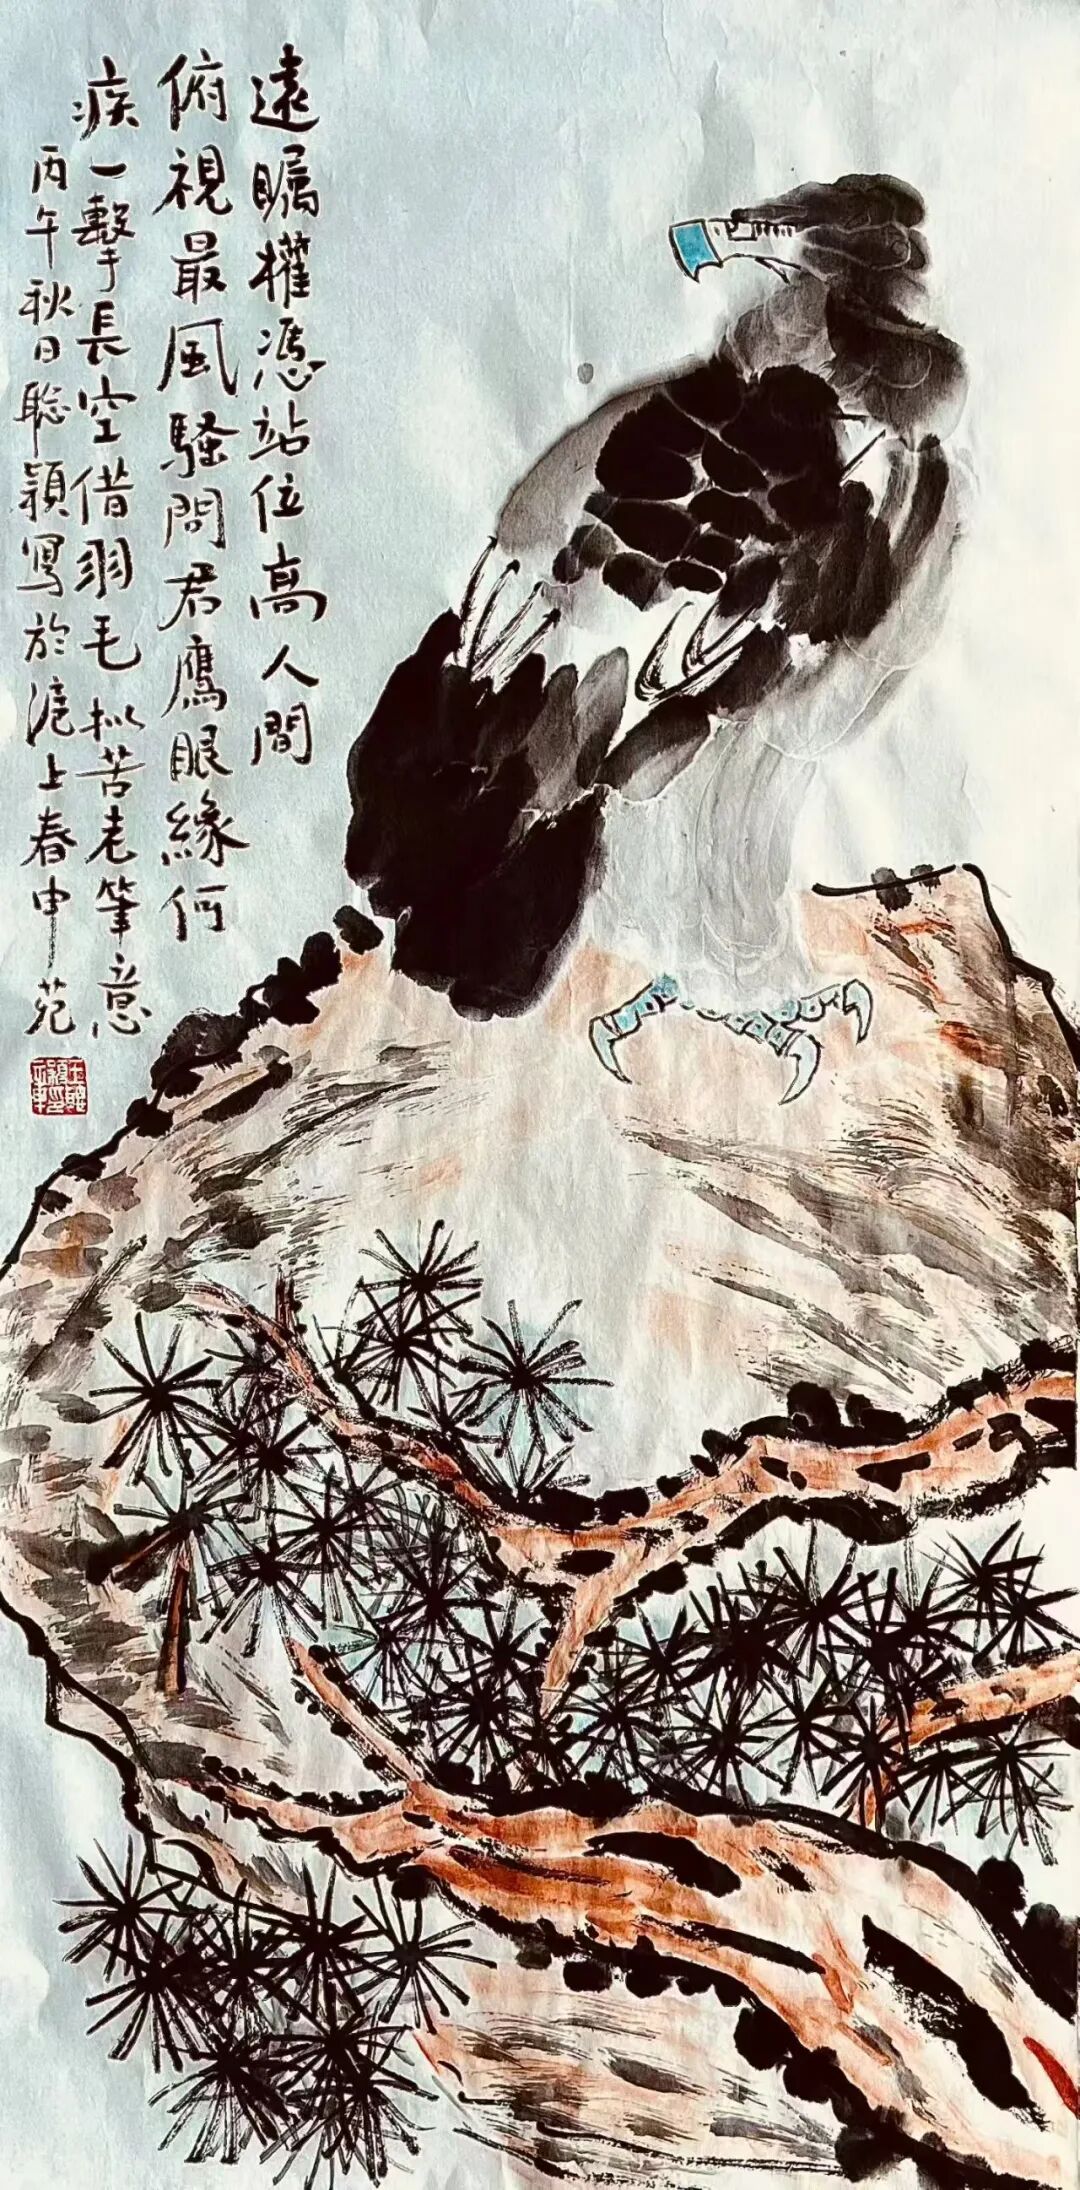 遠瞩權憑站位高人間
俯視最風騷問君鷹眼緣何
疾一擊長空借羽毛拟苦老筆意
丙午秋日聡穎寫於滬上春申苑